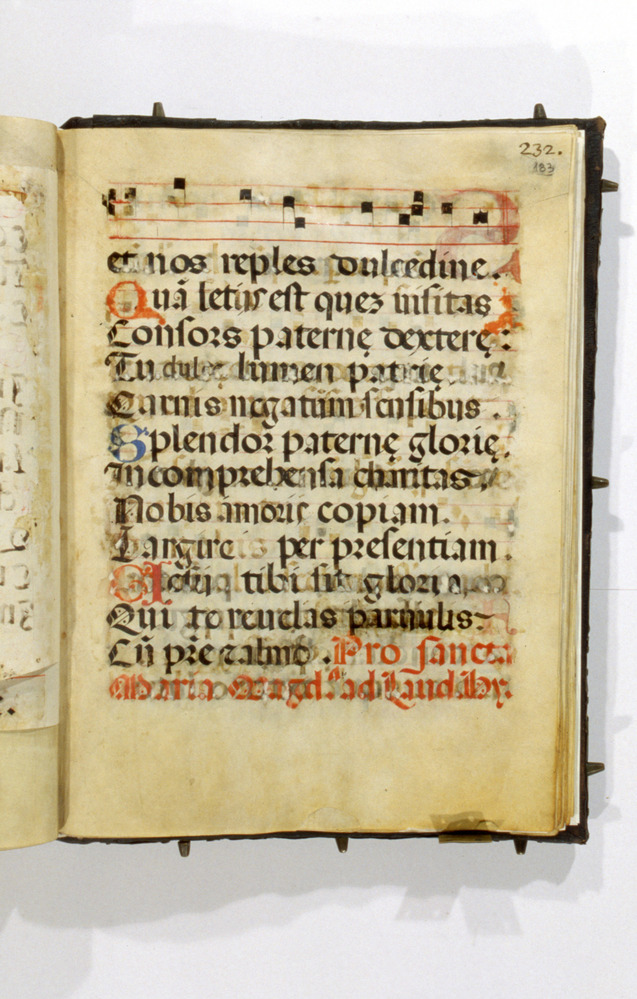 232.
183
et nos reples dulcedine.
Quā letus est quez uisitas
Consors paternę dexterę:
Tu dulce lumen patrię
Carnis negatum sensibus.
Splendor paternę glorię.
Incomprehensa charitas.
Nobis amoris copiam.
Largire per presentiam.
Gloria tibi sit gloria
Qui te reuelas paruulis
Cū pr̄e
Pro sancta
Maria Magd. ad Laud. hȳ.